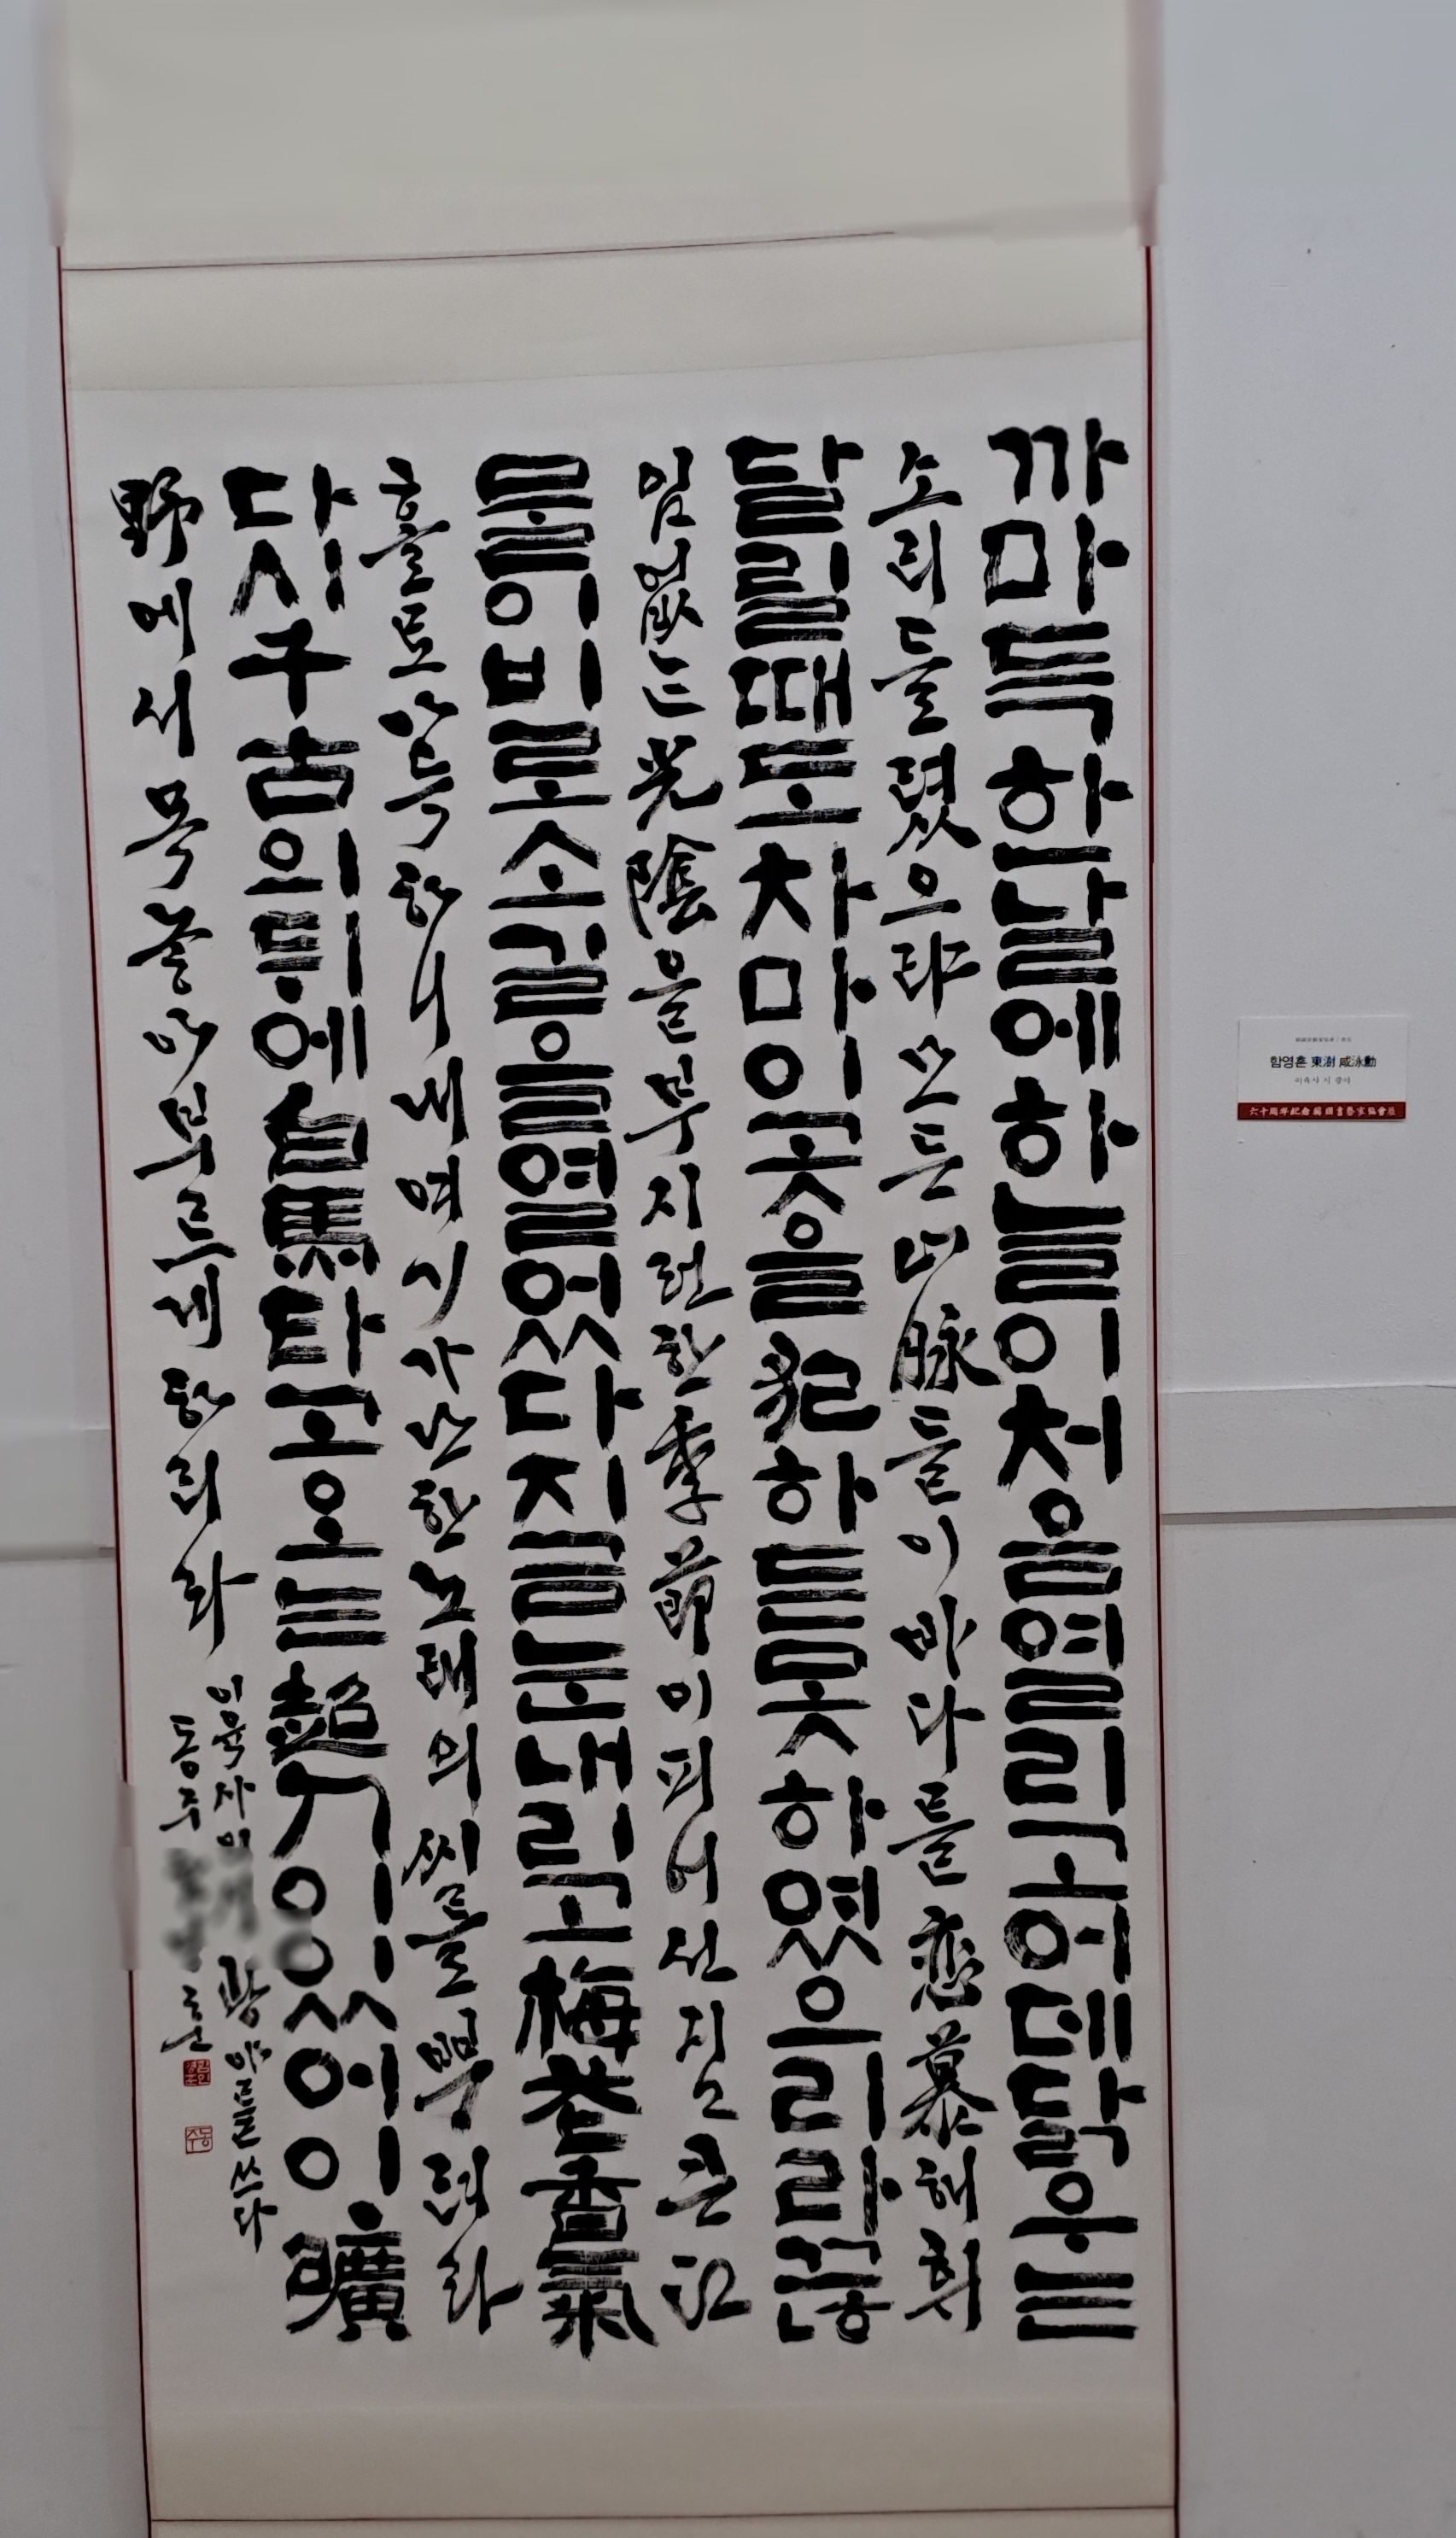 까마득한날에하늘이처음열리고어데닭우는
소리들렸으랴모든山脉들이바다를戀慕해휘
달릴때도차마이곳을犯하든못하였으리라끊
임없는光陰을부지런한季節이피어선지고큰江
물이비로소길을열었다지금눈내리고梅花香氣
호을로아득하니내여기가난한노래의씨를뿌려라
다시千古의뒤에白馬타고오는超人이있어이曠
野에서목놓아부르게하리라
이육사 광야를쓰다
동주 훈
함영훈 東澍 咸泳勳
이육사 시 광야
六十周年紀念 韓國書藝家協會展